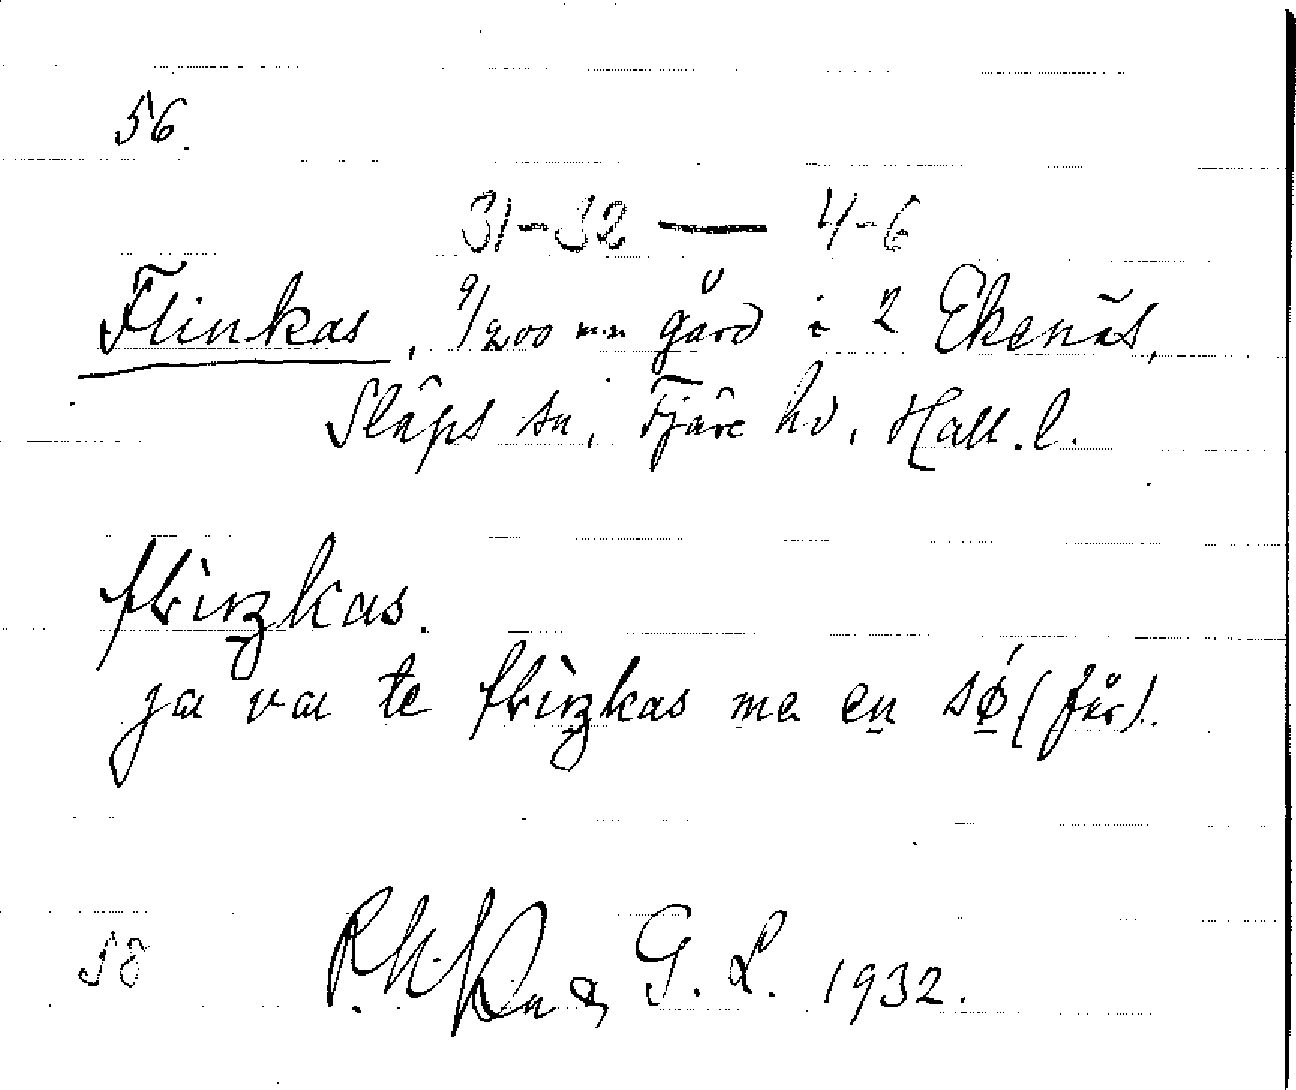 56.
31-32 — 4-6
Flinkas, 9/200 mn gård i 2 Ekenäs,
Släps sn, Fjäre hd, Hall. l.
flìŋkas.
ja va te flìŋkas me en sǿ (får).
Sö G. L. 1932.